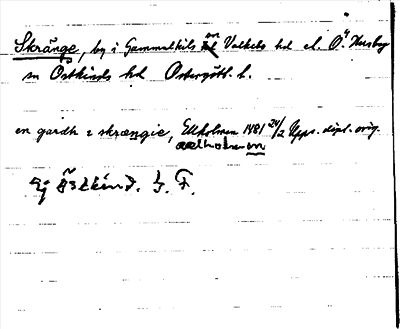 Skränge, by i Gammalkils sn Valkebo hd el. Ö. Husby
sn Östkinds hd Östergötl. l.
en gardh i skrængie, Ekholmen 1481 24/2 Upps. dipl. orig.
aekholmenn
Ej Östkind. G. F.